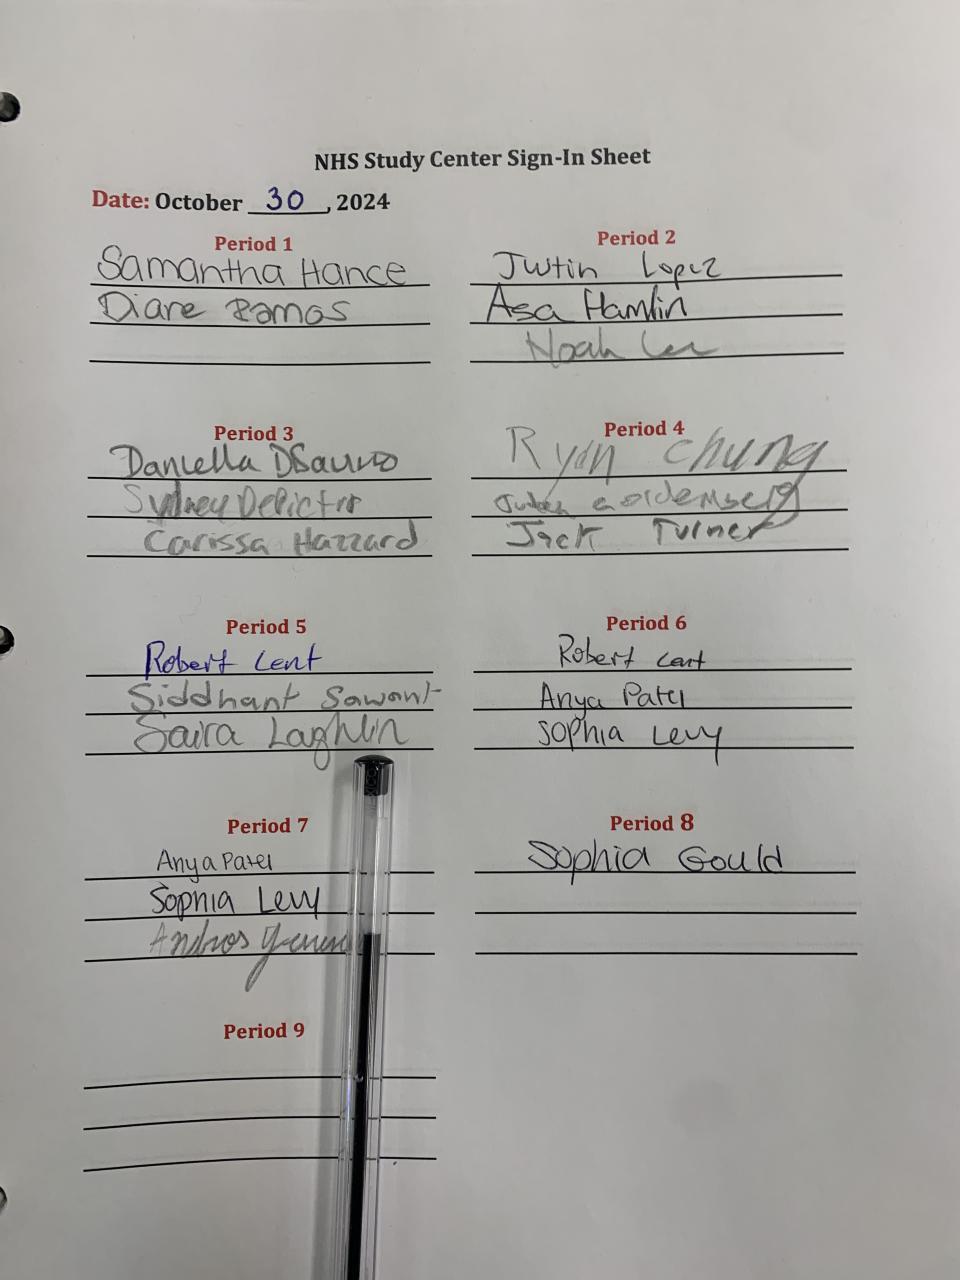 NHS Study Center Sign-In Sheet
Date: October 30, 2024
Period 1
Samantha Hance
Diane Ramos
Period 2
Justin Lopez
Asa Hamlin
Noah Lee
Period 3
Daniella
Sydney
Carissa Hazzard
Period 4
Ryan Chung
Jack Turner
Period 5
Robert Lent
Siddhant Sawant
Saira Laghlin
Period 6
Robert Lent
Anya Patel
Sophia Levy
Period 7
Anya Patel
Sophia Levy
Andros
Period 8
Sophia Gould
Period 9